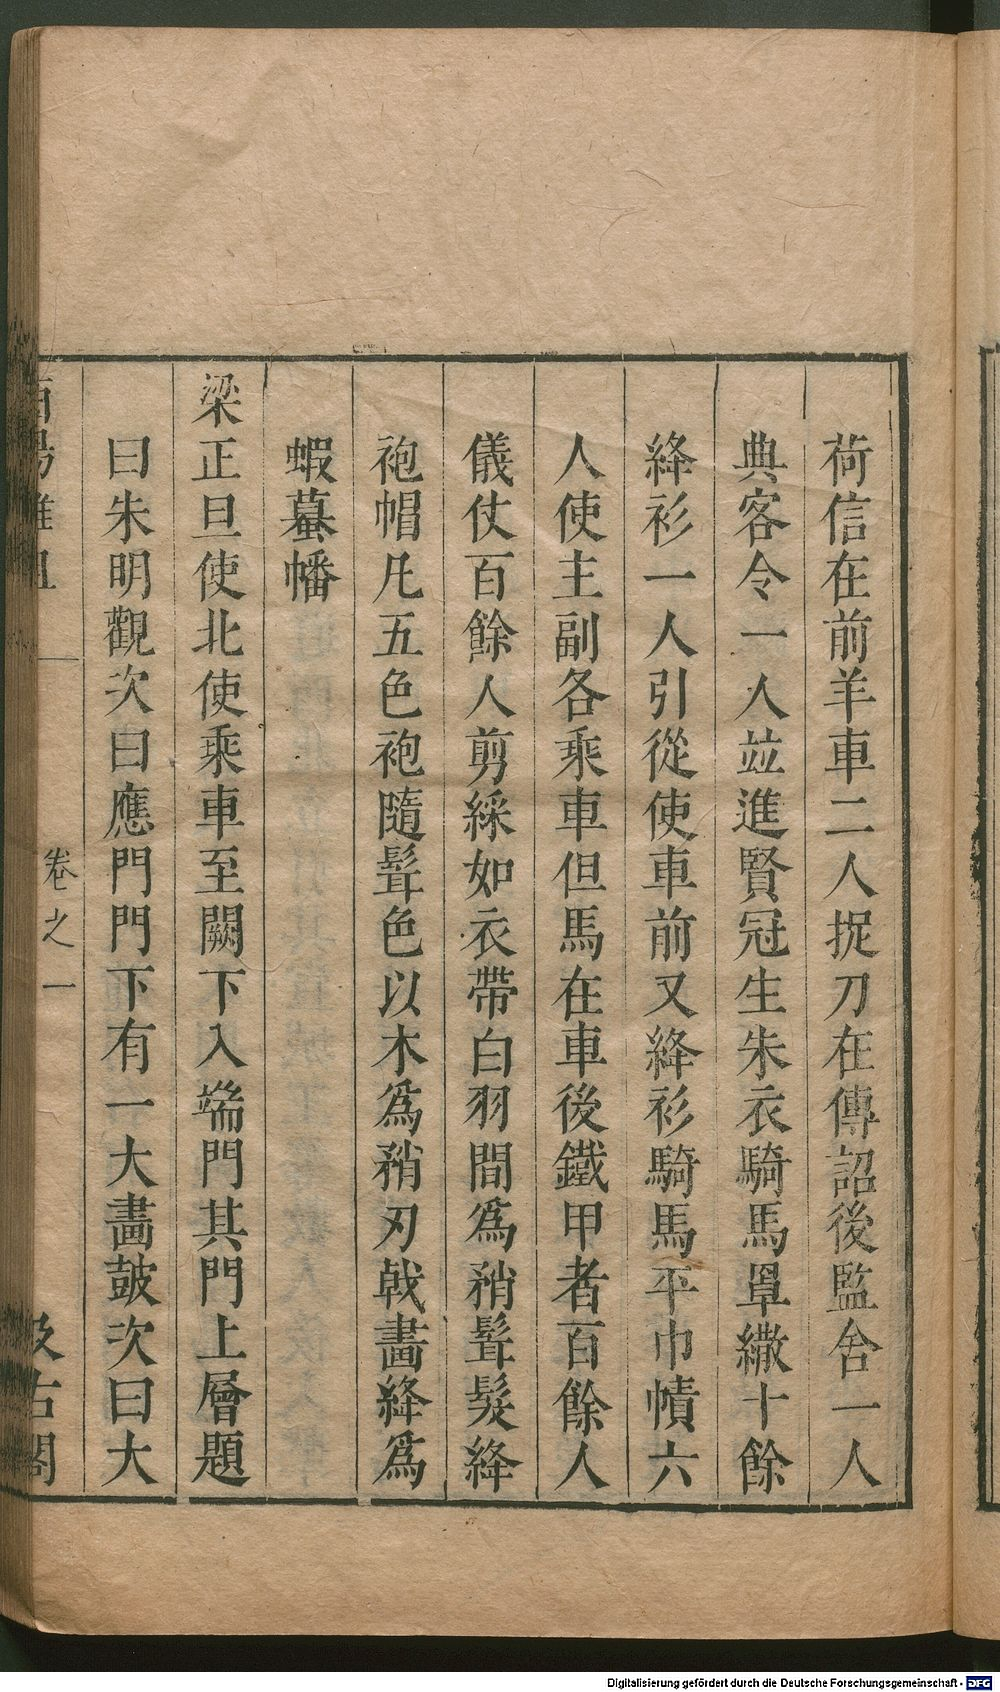 荷信在前羊車二人捉刀在傳詔後監舍一人
典客令一人並進賢冠生朱衣騎馬罩繖十餘
絳衫一人引從使車前又絳衫騎馬平巾幘六
人使主副各乘車但馬在車後鐵甲者百餘人
儀仗百餘人剪綵如衣帶白羽間爲矟髶髮絳
袍帽凡五色袍隨髶色以木爲矟刃戟畫絳爲
蝦蟇幡
梁正旦使北使乘車至闕下入端門其門上層題
曰朱明觀次曰應門門下有一大畫鼓次曰大
酉陽雜俎
卷之一
汲古閣
Digitalisierung gefördert durch die Deutsche Forschungsgemeinschaft - DFG